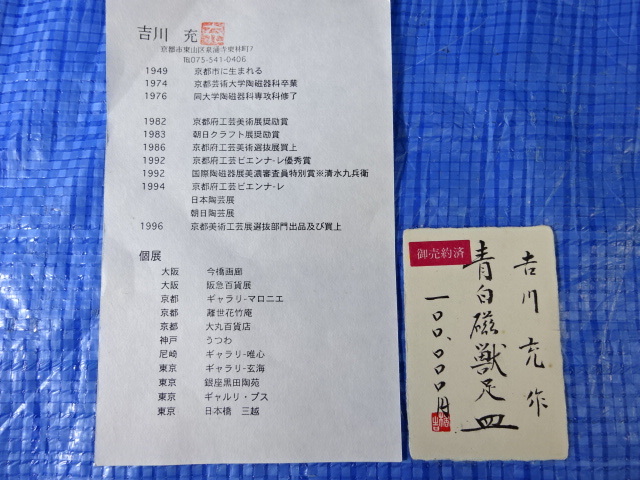 吉川 充
京都市東山区泉涌寺東林町7
℡075-541-0406
1949 京都市に生まれる
1974 京都芸術大学陶磁器科卒業
1976 同大学陶磁器科専攻科修了
1982 京都府工芸美術展奨励賞
1983 朝日クラフト展奨励賞
1986 京都府工芸美術選抜展買上
1992 京都府工芸ビエンナ-レ優秀賞
1992 国際陶磁器展美濃審査員特別賞※清水九兵衛
1994 京都府工芸ビエンナ-レ
日本陶芸展
朝日陶芸展
1996 京都美術工芸展選抜部門出品及び買上
個展
大阪 今橋画廊
大阪 阪急百貨展
京都 ギャラリ-マロニエ
京都 離世花竹庵
京都 大丸百貨店
神戸 うつわ
尼崎 ギャラリ-唯心
東京 ギャラリ-玄海
東京 銀座黒田陶苑
東京 ギャルリ・プス
東京 日本橋 三越
御売約済
吉川充作
青白磁獣足皿
一〇〇、〇〇〇円